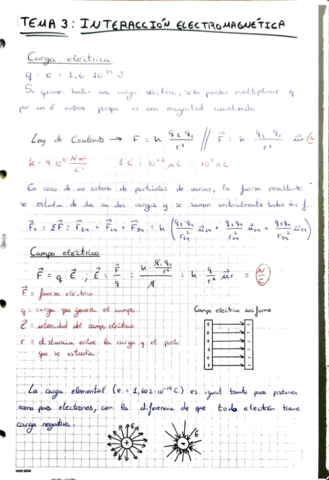 TEMA 3: INTERACCIÓN ELECTROMAGNÉTICA
Carga eléctrica
q = e = 1,6 · 10⁻¹⁹
Si quieren hallar una carga eléctrica, solo puedes multiplicar q
por un nº entero porque es una magnitud cuantizada
Ley de Coulomb → F = k q₂ q₁ / r² // F⃗ = k · q₂ q₁ / r² · u⃗r
k = 9·10⁹ N·m² / C²
En caso de un sistema de partículas de varias, la fuerza resultante
se estudia de dos en dos cargas y se suman vectorialmente todas
Campo eléctrico
F⃗ = q · E⃗ ; E⃗ = F⃗ / q = k · q·q₁/r² / q = k · q / r² u⃗r = (N/C)
F⃗ = fuerza eléctrica
Campo eléctrico uniforme
q = carga que genera el campo
E⃗ = intensidad del campo eléctrico
r = distancia entre la carga y el punto
que se estudia
La carga elemental (e = 1,602 · 10⁻¹⁹ C) es igual tanto para protones
como para electrones, con la diferencia de que todo electrón tiene
carga negativa.